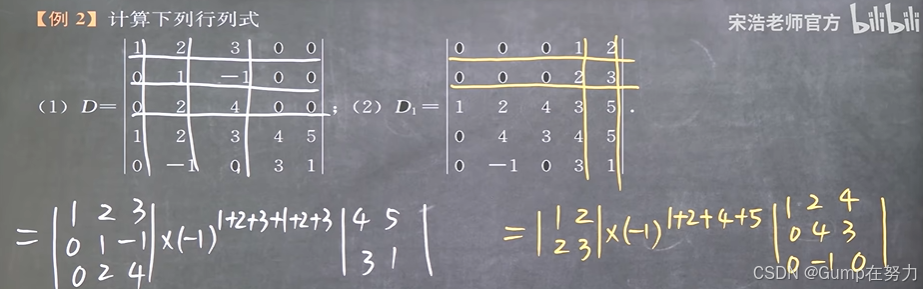 【例 2】 计算下列行列式
宋浩老师官方 bilibili
1 2 3 0 0
0 1 -1 0 0
(1) D= 0 2 4 0 0 ;
1 2 3 4 5
0 -1 0 3 1
0 0 0 1 2
0 0 0 2 3
(2) D₁= 1 2 4 3 5 .
0 4 3 4 5
0 -1 0 3 1
= |1 2 3| ×(-1)^{1+2+3+1+2+3} |4 5|
|0 1 -1| |3 1|
|0 2 4|
= |1 2| ×(-1)^{1+2+4+5} |1 2 4|
|2 3| |0 4 3|
|0 -1 0|
CSDN @Gump在努力